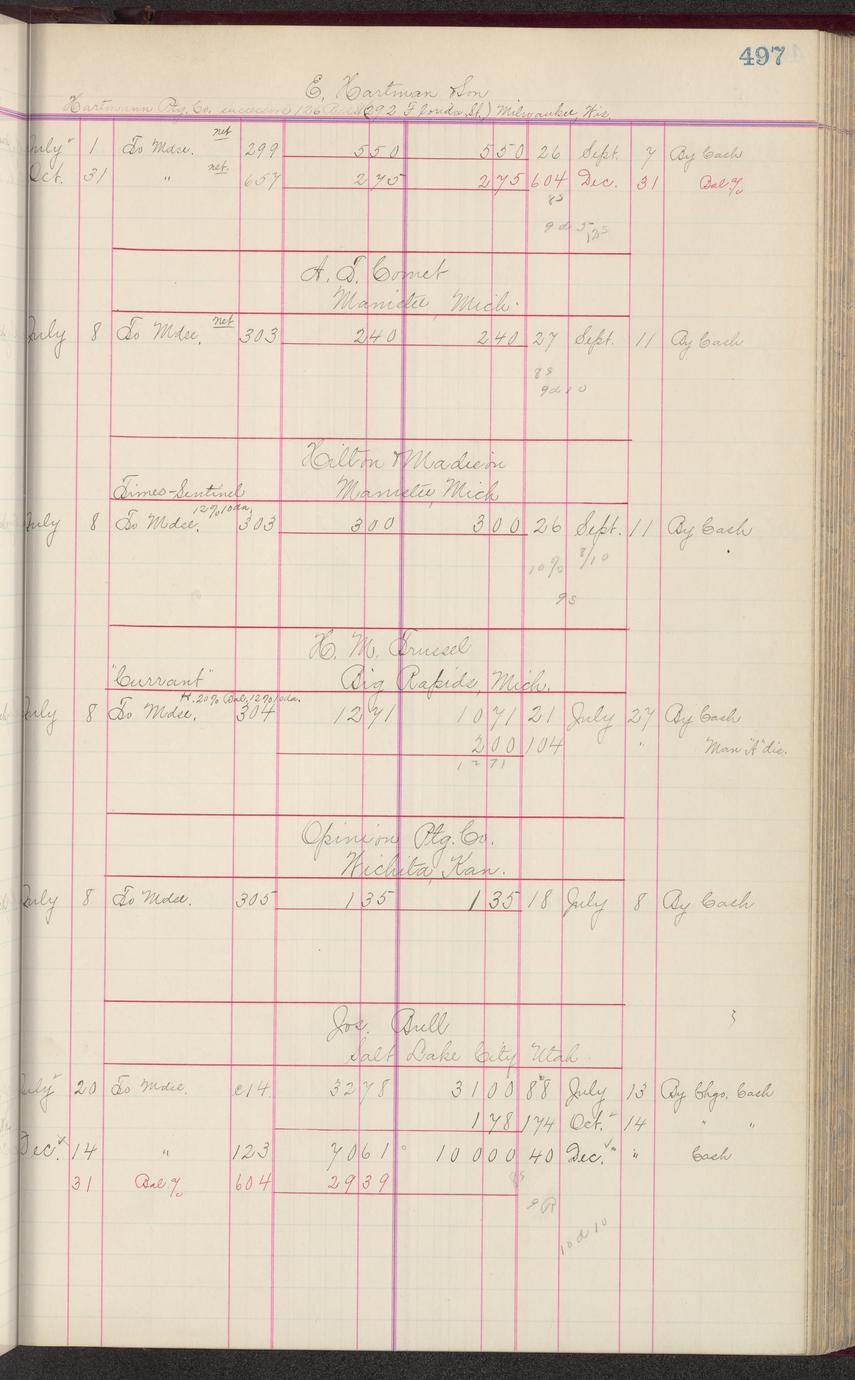 497
E. Hartman & Son
Hartmann Ptg. Co. succesors 126 (292 Florida St.) Milwaukee, Wis.
July 1 To Mdse. net 299 550 550 26 Sept. 7 By Cash
Oct. 31 " net 657 275 275 604 Dec. 31 Bal %
85
9 d 5 125
Manistee, Mich.
July 8 To Mdse. net 303 240 240 27 Sept. 11 By Cash
8s
9 d 10
Hilton & Madison
Times-Sentinel Manistee, Mich
July 8 To Mdse. 12% 10 da. 303 300 300 26 Sept. 11 By Cash
10% 8/10
9s
"Currant" Big Rapids, Mich.
July 8 To Mdse. 20% Bal. 12% 10 da. 304 1271 1071 21 July 27 By Cash
200 104 " Man "A" dis.
1271
Opinion Ptg. Co.
Wichita, Kan.
July 8 To Mdse. 305 135 135 18 July 8 By Cash
Jos. Bull
Salt Lake City Utah
July 20 To Mdse. c14 3278 3100 88 July 13 By Chgo. Cash
178 174 Oct. 14 " "
Dec. 14 " 123 7061 10000 40 Dec. " Cash
31 Bal % 604 2939
10 d 10